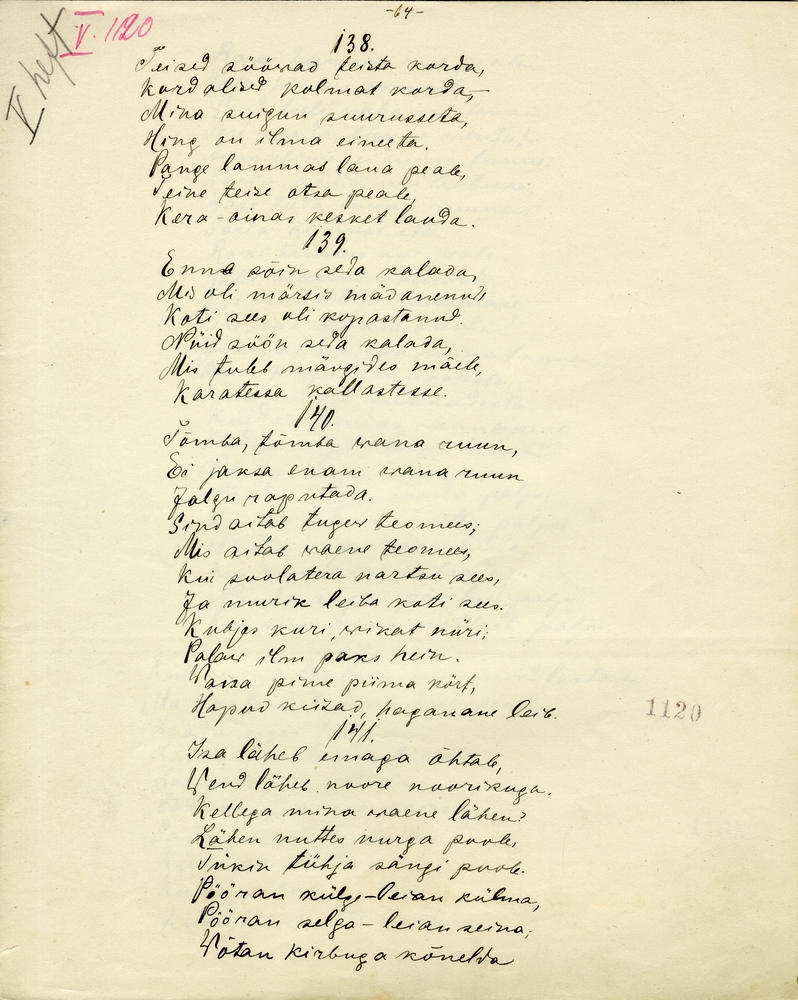 -64-
V. 1120
V heft
138.
Teised sööwad teista korda,
Kordalised kolmat korda, –
Mina suigun suurusseta,
Hing on ilma eineeta.
Pange lammas laua peale,
Teine teise otsa peale,
Kera-oinas kesket lauda.
139.
Enne sõin seda kalada,
Mis oli märsis mädanenud,
Koti sees oli kopastanud.
Nüid söön seda kalada,
Mis tuleb mängides mäele,
Karatessa kallastesse.
140.
Tõmba, tõmba wana ruun,
Ei jaksa enam wana ruun
Jalgu raputada.
Sind aitab tugew teomees;
Mis aitab waene teomees,
Kui soolatera nartsu sees,
Ja murik leiba koti sees.
Kubjas kuri, wikat nüri;
Palaw ilm paks hein.
Waga pime piima kört,
Hapud kiisad, haganane leib.
1120
141.
Isa läheb emaga õhtale,
Wend läheb noore noorikuga.
Kellega mina waene lähen?
Lähen nuttes nurga poole,
Tükin tühja sängi poole.
Pööran külge – leian külma,
Pööran selga – leian seina;
Wõtan kirbuga kõnelda